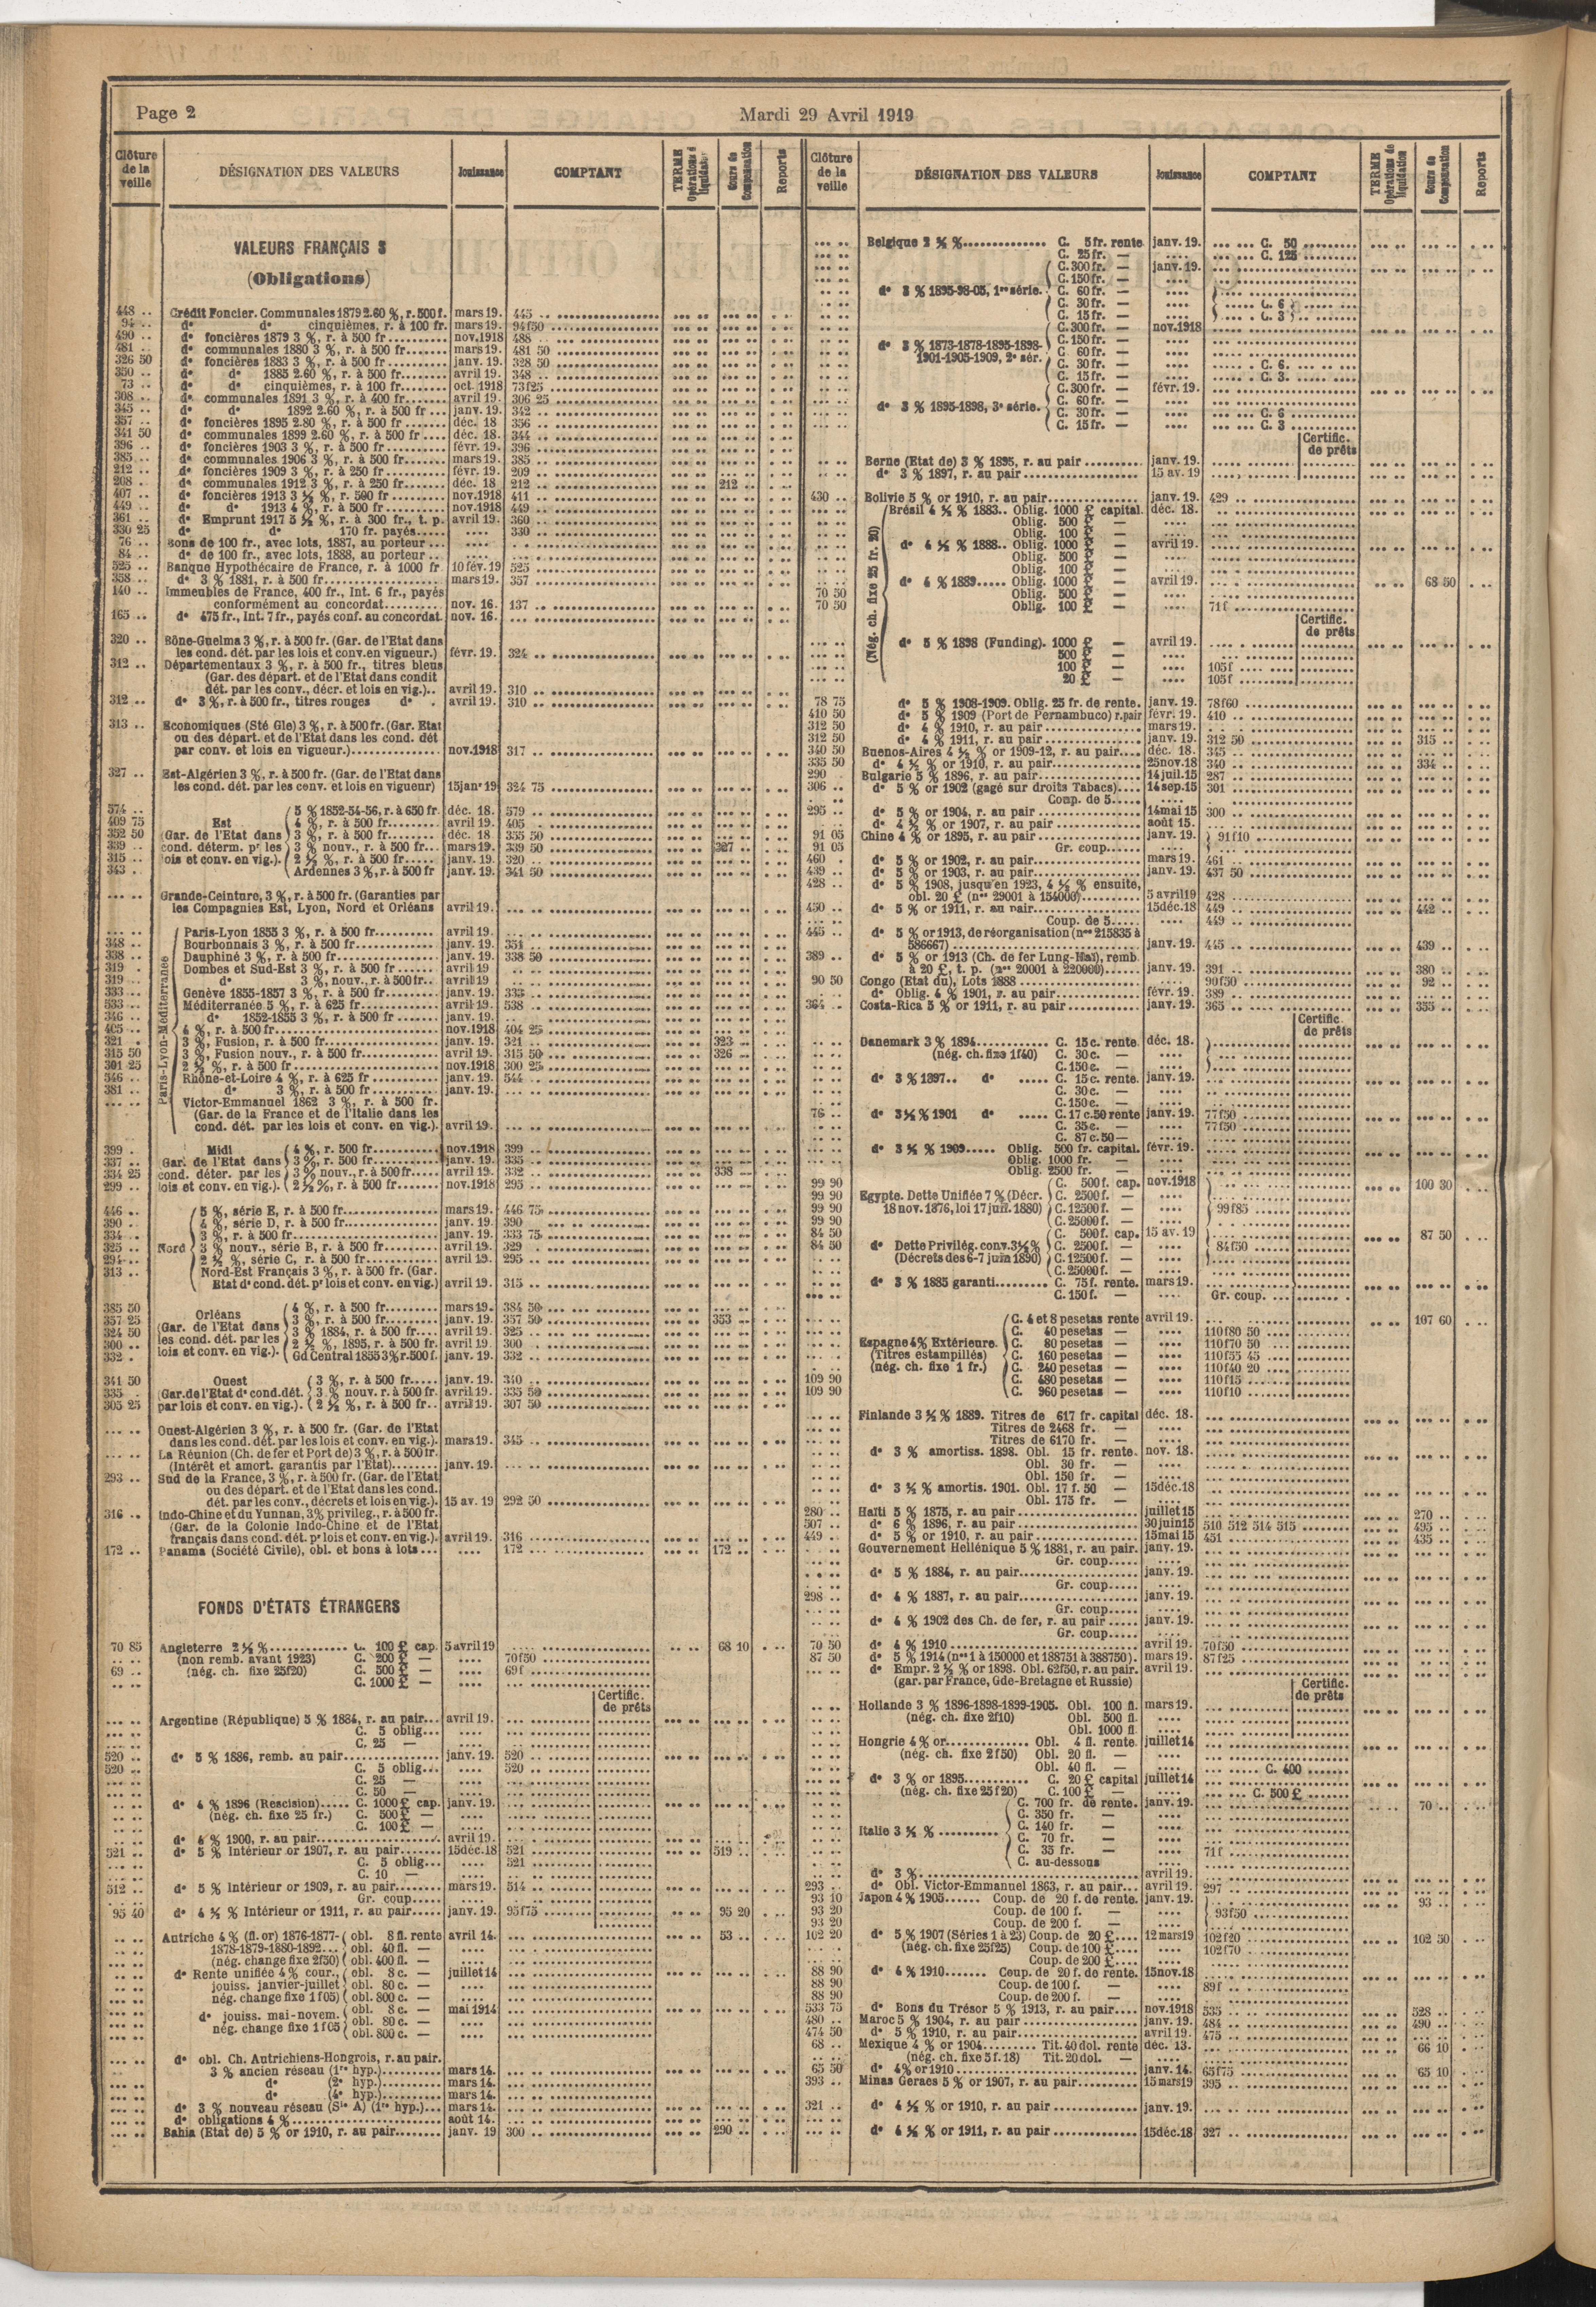 Page 2
Mardi 29 Avril 1919
Clôture de la veille
DÉSIGNATION DES VALEURS
Jouissance
COMPTANT
TERME Opérations de liquidation
Cours de Compensation
Reports
VALEURS FRANÇAIS S
(Obligations)
448 .. Crédit Foncier. Communales 1879 2.60 %, r. 500 f. mars 19. 445 ..
94 .. dº dº cinquièmes, r. à 100 fr. mars 19. 94f50
490 .. dº foncières 1879 3 %, r. à 500 fr. nov. 1918 488 ..
481 .. dº communales 1880 3 %, r. à 500 fr. mars 19. 481 50
326 50 dº foncières 1883 3 %, r. à 500 fr. janv. 19. 328 50
350 .. dº dº 1885 2.60 %, r. à 500 fr. avril 19. 348 ..
73 .. dº dº cinquièmes, r. à 100 fr. oct. 1918 73f25
308 .. dº communales 1891 3 %, r. à 400 fr. avril 19. 306 25
345 .. dº dº 1892 2.60 %, r. à 500 fr. janv. 19. 342 ..
357 .. dº foncières 1895 2.80 %, r. à 500 fr. déc. 18 356 ..
341 50 dº communales 1899 2.60 %, r. à 500 fr. déc. 18. 344 ..
396 .. dº foncières 1903 3 %, r. à 500 fr. févr. 19. 396 ..
385 .. dº communales 1906 3 %, r. à 500 fr. mars 19. 385 ..
212 .. dº foncières 1909 3 %, r. à 250 fr. févr. 19. 209 ..
208 .. dº communales 1912 3 %, r. à 250 fr. déc. 18 212 .. 212 ..
407 .. dº foncières 1913 3 ½ %, r. 500 fr. nov. 1918 411 ..
449 .. dº dº 1913 4 %, r. à 500 fr. nov. 1918 449 ..
361 .. dº Emprunt 1917 5 ½ %, r. à 300 fr., t. p. avril 19. 360 ..
330 25 dº dº 170 fr. payés 330 ..
76 .. Bons de 100 fr., avec lots, 1887, au porteur
84 .. dº de 100 fr., avec lots, 1888, au porteur
525 .. Banque Hypothécaire de France, r. à 1000 fr. 10 fév. 19 525 ..
358 .. dº 3 % 1881, r. à 500 fr. mars 19. 357 ..
140 .. Immeubles de France, 400 fr., Int. 6 fr., payés
conformément au concordat nov. 16. 137 ..
165 .. dº 475 fr., Int. 7 fr., payés conf. au concordat. nov. 16.
320 .. Bône-Guelma 3 %, r. à 500 fr. (Gar. de l'Etat dans
les cond. dét. par les lois et conv. en vigueur.) févr. 19. 324 ..
312 .. Départementaux 3 %, r. à 500 fr., titres bleus
(Gar. des départ. et de l'Etat dans condit
dét. par les conv., décr. et lois en vig.). avril 19. 310 ..
312 .. dº 3 %, r. à 500 fr., titres rouges dº avril 19. 310 ..
313 .. Economiques (Sté Gle) 3 %, r. à 500 fr. (Gar. Etat
ou des départ. et de l'Etat dans les cond. dét
par conv. et lois en vigueur.) nov. 1918 317 ..
327 .. Est-Algérien 3 %, r. à 500 fr. (Gar. de l'Etat dans
les cond. dét. par les conv. et lois en vigueur) 15 janr 19 324 75
Est (Gar. de l'Etat dans cond. déterm. pr les lois et conv. en vig.).
574 .. 5 % 1852-54-56, r. à 650 fr. déc. 18. 579 ..
409 75 4 %, r. à 500 fr. avril 19. 405 ..
352 50 3 %, r. à 500 fr. déc. 18. 355 50
339 .. 3 % nouv., r. à 500 fr. mars 19. 339 50 327 ..
315 .. 2 ½ %, r. à 500 fr. janv. 19. 320 ..
343 .. Ardennes 3 %, r. à 500 fr janv. 19. 341 50
Grande-Ceinture, 3 %, r. à 500 fr. (Garanties par
les Compagnies Est, Lyon, Nord et Orléans avril 19.
Paris-Lyon-Méditerranée
Paris-Lyon 1855 3 %, r. à 500 fr. avril 19.
348 .. Bourbonnais 3 %, r. à 500 fr. janv. 19. 351 ..
338 .. Dauphiné 3 %, r. à 500 fr. janv. 19. 338 50
319 . Dombes et Sud-Est 3 %, r. à 500 fr. avril 19
319 .. dº 3 %, nouv., r. à 500 fr. avril 19
333 .. Genève 1855-1857 3 %, r. à 500 fr. janv. 19. 333 ..
533 .. Méditerranée 5 %, r. à 625 fr. avril 19. 538 ..
346 .. dº 1852-1855 3 %, r. à 500 fr. janv. 19.
405 .. 4 %, r. à 500 fr. nov. 1918 404 25
321 . 3 %, Fusion, r. à 500 fr. janv. 19. 321 .. 323 ..
315 50 3 %, Fusion nouv., r. à 500 fr. avril 19. 315 50 326 ..
301 25 2 ½ %, r. à 500 fr. nov. 1918 300 25
546 .. Rhône-et-Loire 4 %, r. à 625 fr. janv. 19. 544 ..
381 .. dº 3 %, r. à 500 fr. janv. 19.
Victor-Emmanuel 1862 3 %, r. à 500 fr.
(Gar. de la France et de l'Italie dans les
cond. dét. par les lois et conv. en vig.). avril 19.
Midi (Gar. de l'Etat dans cond. déter. par les lois et conv. en vig.).
399 . 4 %, r. 500 fr. nov. 1918 399 ..
337 .. 3 %, r. 500 fr. janv. 19. 335 ..
334 25 3 % nouv., r. à 500 fr. avril 19. 332 .. 338 ..
299 .. 2 ½ %, r. à 500 fr. nov. 1918 295 ..
Nord
446 .. 5 %, série E, r. à 500 fr. mars 19. 446 75
390 .. 4 %, série D, r. à 500 fr. janv. 19. 390 ..
334 .. 3 %, r. à 500 fr. janv. 19. 333 75
325 .. 3 % nouv., série B, r. à 500 fr. avril 19. 329 ..
294 .. 2 ½ %, série C, r. à 500 fr. avril 19. 295 ..
313 .. Nord-Est Français 3 %, r. à 500 fr. (Gar.
Etat dº cond. dét. pr lois et conv. en vig.) avril 19. 315 ..
Orléans (Gar. de l'Etat dans les cond. dét. par les lois et conv. en vig.).
385 50 4 %, r. à 500 fr. mars 19. 384 50
357 25 3 %, r. à 500 fr. janv. 19. 357 50 353 ..
324 50 3 % 1884, r. à 500 fr. avril 19. 325 ..
300 .. 2 ½ %, 1895, r. à 500 fr. avril 19. 300 ..
332 . Gd Central 1855 3 % r. 500 f. janv. 19. 332 ..
Ouest (Gar. de l'Etat dº cond. dét. par lois et conv. en vig.).
341 50 3 %, r. à 500 fr. janv. 19. 340 ..
335 . 3 % nouv. r. à 500 fr. avril 19. 335 50
305 25 2 ½ %, r. à 500 fr. avril 19. 307 50
Ouest-Algérien 3 %, r. à 500 fr. (Gar. de l'Etat
dans les cond. dét. par les lois et conv. en vig.). mars 19. 345 ..
La Réunion (Ch. de fer et Port de) 3 %, r. à 500 fr.
(Intérêt et amort. garantis par l'Etat) janv. 19.
293 .. Sud de la France, 3 %, r. à 500 fr. (Gar. de l'Etat
ou des départ. et de l'Etat dans les cond.
dét. par les conv., décrets et lois en vig.). 15 av. 19 292 50
316 .. Indo-Chine et du Yunnan, 3 % privileg., r. à 500 fr.
(Gar. de la Colonie Indo-Chine et de l'Etat
français dans cond. dét. pr lois et conv. en vig.). avril 19. 316 ..
172 .. Panama (Société Civile), obl. et bons à lots 172 .. 172 ..
FONDS D'ÉTATS ÉTRANGERS
70 85 Angleterre 2 ½ % C. 100 £ cap. 5 avril 19 68 10
(non remb. avant 1923) C. 200 £ — 70f50
69 .. (nég. ch. fixe 25f20) C. 500 £ — 69f
C. 1000 £ —
Certific. de prêts
Argentine (République) 5 % 1884, r. au pair avril 19.
C. 5 oblig.
C. 25 —
520 .. dº 5 % 1886, remb. au pair janv. 19. 520 ..
520 .. C. 5 oblig. 520 ..
C. 25 —
C. 50 —
dº 4 % 1896 (Rescision) C. 1000 £ cap. janv. 19.
(nég. ch. fixe 25 fr.) C. 500 £ —
C. 100 £ —
dº 4 % 1900, r. au pair avril 19.
521 .. dº 5 % Intérieur or 1907, r. au pair 15 déc. 18 521 .. 519 ..
C. 5 oblig. 521 ..
C. 10 —
512 .. dº 5 % Intérieur or 1909, r. au pair mars 19. 514 ..
Gr. coup.
95 40 dº 4 ½ % Intérieur or 1911, r. au pair janv. 19. 95f75 95 20
Autriche 4 % (fl. or) 1876-1877- obl. 8 fl. rente avril 14. 53 ..
1878-1879-1880-1892 obl. 40 fl. —
(nég. change fixe 2f50) obl. 400 fl. —
dº Rente unifiée 4 % cour., obl. 8 c. — juillet 14
jouiss. janvier-juillet obl. 80 c. —
nég. change fixe 1f05) obl. 800 c. —
dº jouiss. mai-novem. obl. 8 c. — mai 1914
nég. change fixe 1f05 obl. 80 c. —
obl. 800 c. —
dº obl. Ch. Autrichiens-Hongrois, r. au pair.
3 % ancien réseau (1re hyp.) mars 14.
dº (2e hyp.) mars 14.
dº (4e hyp.) mars 14.
dº 3 % nouveau réseau (Sie A) (1re hyp.) mars 14.
dº obligations 4 % août 14.
Bahia (Etat de) 5 % or 1910, r. au pair janv. 19 300 .. 290 ..
Clôture de la veille
DÉSIGNATION DES VALEURS
Jouissance
COMPTANT
TERME Opérations de liquidation
Cours de Compensation
Reports
Belgique 2 ½ % C. 5 fr. rente janv. 19. C. 50
C. 25 fr. — C. 125
dº 3 % 1895-98-05, 1re série. C. 300 fr. — janv. 19.
C. 150 fr. —
C. 60 fr. —
C. 30 fr. — C. 6
C. 15 fr. — C. 3
dº 3 % 1873-1878-1895-1898-1901-1905-1909, 2e sér. C. 300 fr. — nov. 1918
C. 150 fr. —
C. 60 fr. —
C. 30 fr. — C. 6.
C. 15 fr. — C. 3.
dº 3 % 1895-1898, 3e série. C. 300 fr. — févr. 19.
C. 60 fr. —
C. 30 fr. — C. 6
C. 15 fr. — C. 3
Certific. de prêts
Berne (Etat de) 3 % 1895, r. au pair janv. 19.
dº 3 % 1897, r. au pair 15 av. 19
430 .. Bolivie 5 % or 1910, r. au pair janv. 19. 429 ..
(Nég. ch. fixe 25 fr. 20)
Brésil 4 ½ % 1883 Oblig. 1000 £ capital. déc. 18.
Oblig. 500 £ —
Oblig. 100 £ —
dº 4 ½ % 1888 Oblig. 1000 £ — avril 19.
Oblig. 500 £ —
Oblig. 100 £ —
dº 4 % 1889 Oblig. 1000 £ — avril 19. 68 50
70 50 Oblig. 500 £ —
70 50 Oblig. 100 £ — 71f
Certific. de prêts
dº 5 % 1898 (Funding). 1000 £ — avril 19.
500 £ —
100 £ — 105f
20 £ — 105f
78 75 dº 5 % 1908-1909. Oblig. 25 fr. de rente. janv. 19. 78f60
410 50 dº 5 % 1909 (Port de Pernambuco) r. pair févr. 19. 410 ..
312 50 dº 4 % 1910, r. au pair mars 19.
312 50 dº 4 % 1911, r. au pair janv. 19. 312 50 315 ..
340 50 Buenos-Aires 4 ½ % or 1909-12, r. au pair déc. 18. 345 ..
335 50 dº 4 ½ % or 1910, r. au pair 25 nov. 18 340 .. 334 ..
290 . Bulgarie 5 % 1896, r. au pair 14 juil. 15 287 ..
306 .. dº 5 % or 1902 (gagé sur droits Tabacs) 14 sep. 15 301 ..
Coup. de 5
295 .. dº 5 % or 1904, r. au pair 14 mai 15 300 ..
dº 4 ½ % or 1907, r. au pair août 15.
91 05 Chine 4 % or 1895, r. au pair janv. 19. 91f10
91 05 Gr. coup.
460 . dº 5 % or 1902, r. au pair mars 19. 461 ..
439 .. dº 5 % or 1903, r. au pair janv. 19. 437 50
428 .. dº 5 % 1908, jusqu'en 1923, 4 ½ % ensuite,
obl. 20 £ (nos 29001 à 154000) 5 avril 19 428 ..
450 .. dº 5 % or 1911, r. au pair 15 déc. 18 449 .. 442 ..
Coup. de 5 449 ..
445 .. dº 5 % or 1913, de réorganisation (nos 215835 à
586667) janv. 19. 445 .. 439 ..
389 .. dº 5 % or 1913 (Ch. de fer Lung-Haï), remb.
à 20 £, t. p. (nos 20001 à 220000) janv. 19. 391 .. 380 ..
90 50 Congo (Etat du), Lots 1888 90f50 92 ..
dº Oblig. 4 % 1901, r. au pair févr. 19. 389 ..
364 .. Costa-Rica 5 % or 1911, r. au pair janv. 19. 365 .. 355 ..
Certific. de prêts
Danemark 3 % 1894 C. 15 c. rente déc. 18.
(nég. ch. fixe 1f40) C. 30 c. —
C. 150 c. —
dº 3 % 1897 dº C. 15 c. rente. janv. 19.
C. 30 c. —
C. 150 c. —
76 .. dº 3 ½ % 1901 dº C. 17 c. 50 rente janv. 19. 77f50
C. 35 c. — 77f50
C. 87 c. 50 —
dº 3 ½ % 1909 Oblig. 500 fr. capital. févr. 19.
Oblig. 1000 fr. —
Oblig. 2500 fr. —
99 90 Egypte. Dette Unifiée 7 % (Décr. C. 500 f. cap. nov. 1918 100 30
99 90 18 nov. 1876, loi 17 juil. 1880) C. 2500 f. —
99 90 C. 12500 f. — 99f85
99 90 C. 25000 f. —
84 50 dº Dette Privilég. conv. 3 ½ % C. 500 f. cap. 15 av. 19 87 50
84 50 (Décrets des 6-7 juin 1890) C. 2500 f. — 84f50
C. 12500 f. —
C. 25000 f. —
dº 3 % 1885 garanti C. 75 f. rente. mars 19.
C. 150 f. — Gr. coup.
Espagne 4 % Extérieure. (Titres estampillés) (nég. ch. fixe 1 fr.)
C. 4 et 8 pesetas rente avril 19. 107 60
C. 40 pesetas — 110f80 50
C. 80 pesetas — 110f70 50
C. 160 pesetas — 110f55 45
C. 240 pesetas — 110f40 20
109 90 C. 480 pesetas — 110f15
109 90 C. 960 pesetas — 110f10
Finlande 3 ½ % 1889. Titres de 617 fr. capital déc. 18.
Titres de 2468 fr. —
Titres de 6170 fr. —
dº 3 % amortiss. 1898. Obl. 15 fr. rente. nov. 18.
Obl. 30 fr. —
Obl. 150 fr. —
dº 3 ½ % amortis. 1901. Obl. 17 f. 50 — 15 déc. 18
Obl. 175 fr. —
280 .. Haïti 5 % 1875, r. au pair juillet 15 270 ..
507 .. dº 6 % 1896, r. au pair 30 juin 15 510 512 514 515 495 ..
449 .. dº 5 % or 1910, r. au pair 15 mai 15 451 .. 435 ..
Gouvernement Hellénique 5 % 1881, r. au pair. janv. 19.
Gr. coup.
dº 5 % 1884, r. au pair janv. 19.
Gr. coup.
298 .. dº 4 % 1887, r. au pair janv. 19.
Gr. coup.
dº 4 % 1902 des Ch. de fer, r. au pair janv. 19.
Gr. coup.
70 50 dº 4 % 1910 avril 19. 70f50
87 50 dº 5 % 1914 (nos 1 à 150000 et 188751 à 388750). mars 19. 87f25
dº Empr. 2 ½ % or 1898. Obl. 62f50, r. au pair. avril 19.
(gar. par France, Gde-Bretagne et Russie)
Certific. de prêts
Hollande 3 % 1896-1898-1899-1905. Obl. 100 fl. mars 19.
(nég. ch. fixe 2f10) Obl. 500 fl.
Obl. 1000 fl
Hongrie 4 % or Obl. 4 fl. rente. juillet 14
(nég. ch. fixe 2f50) Obl. 20 fl. —
Obl. 40 fl. — C. 400
dº 3 % or 1895 C. 20 £ capital juillet 14
(nég. ch. fixe 25f20) C. 100 £ — C. 500 £
Italie 3 ½ %
C. 700 fr. de rente. janv. 19. 70 ..
C. 350 fr. —
C. 140 fr. —
C. 70 fr. —
C. 35 fr. — 71f
C. au-dessous
dº 3 % avril 19.
293 .. dº Obl. Victor-Emmanuel 1863, r. au pair avril 19. 297 ..
93 10 Japon 4 % 1905 Coup. de 20 f. de rente. janv. 19. 93 ..
93 20 Coup. de 100 f. — 93f50
93 20 Coup. de 200 f. —
102 20 dº 5 % 1907 (Séries 1 à 23) Coup. de 20 £ 12 mars 19 102f20 102 50
(nég. ch. fixe 25f25) Coup. de 100 £ 102f70
Coup. de 200 £
88 90 dº 4 % 1910 Coup. de 20 f. de rente. 15 nov. 18
88 90 Coup. de 100 f. — 89f
88 90 Coup. de 200 f. —
533 75 dº Bons du Trésor 5 % 1913, r. au pair nov. 1918 535 .. 528 ..
480 .. Maroc 5 % 1904, r. au pair janv. 19. 484 .. 490 ..
474 50 dº 5 % 1910, r. au pair avril 19. 475 ..
68 .. Mexique 4 % or 1904 Tit. 40 dol. rente déc. 13. 66 10
(nég. ch. fixe 5 f. 18) Tit. 20 dol. —
65 50 dº 4 % or 1910 janv. 14. 65f75 65 10
393 .. Minas Geraes 5 % or 1907, r. au pair 15 mars 19 395 ..
321 .. dº 4 ½ % or 1910, r. au pair janv. 19.
dº 4 ½ % or 1911, r. au pair 15 déc. 18 327 ..